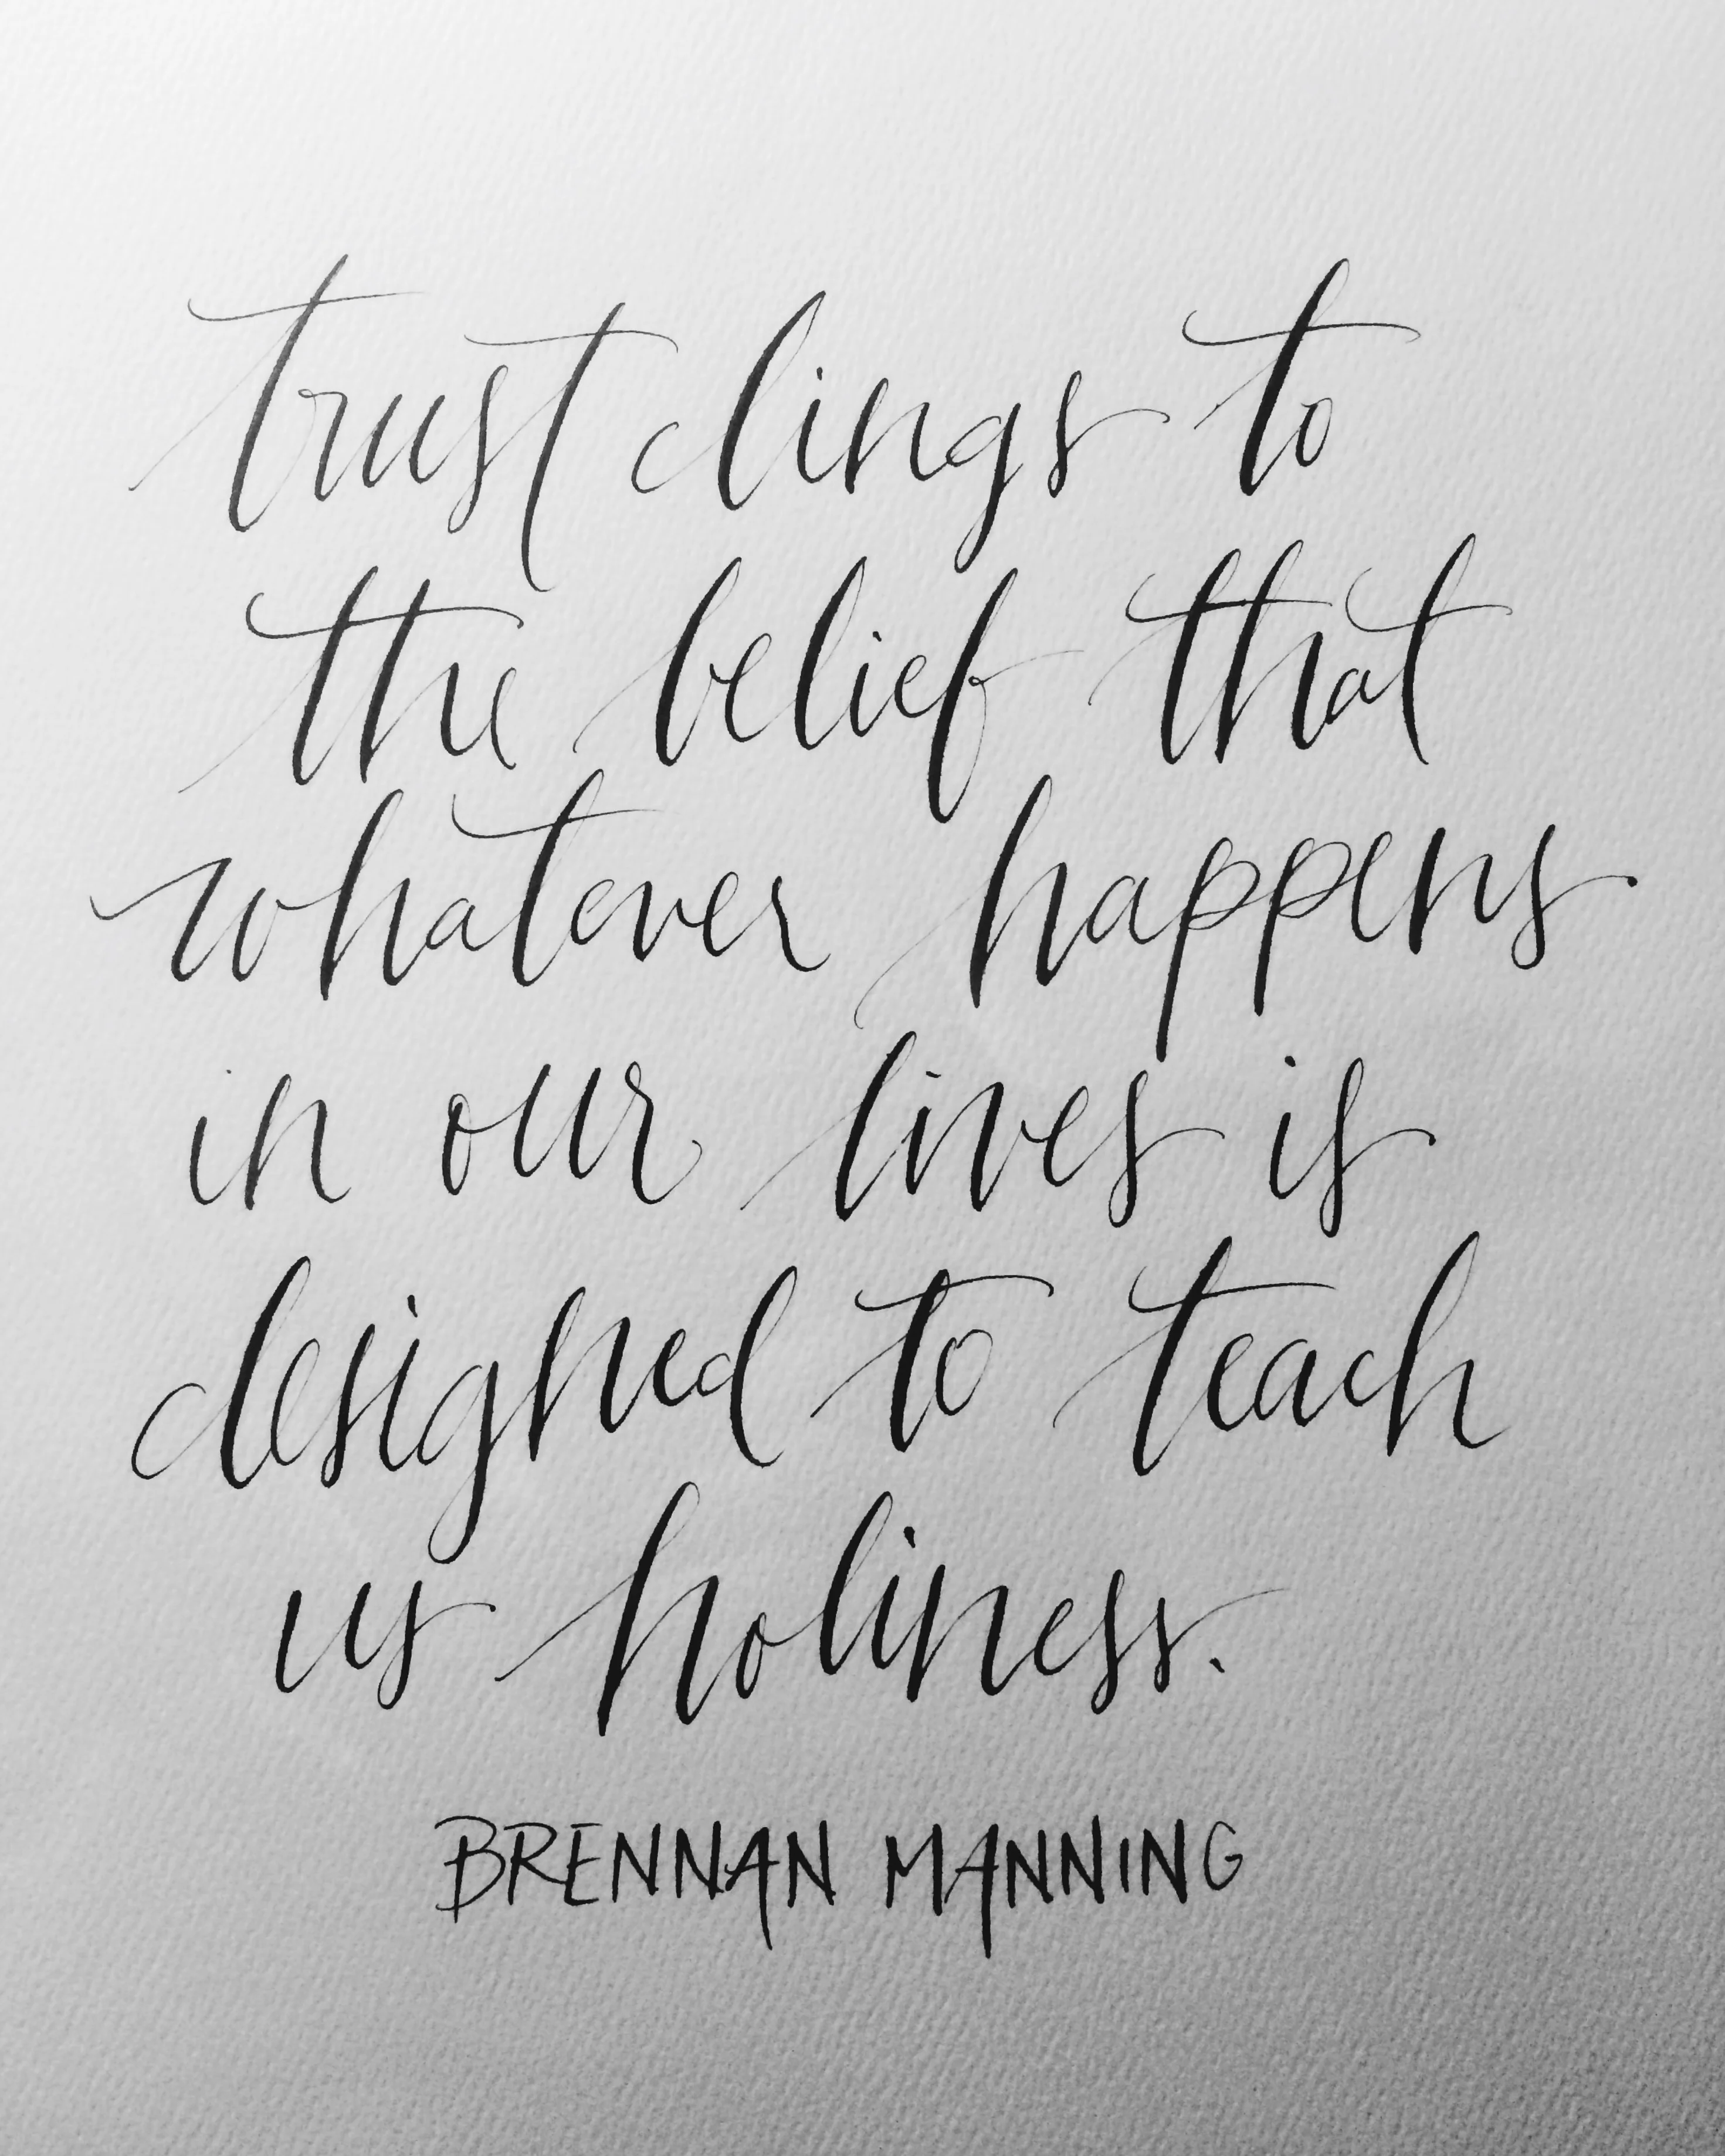 trust clings to
the belief that
whatever happens
in our lives is
designed to teach
us holiness.
BRENNAN MANNING